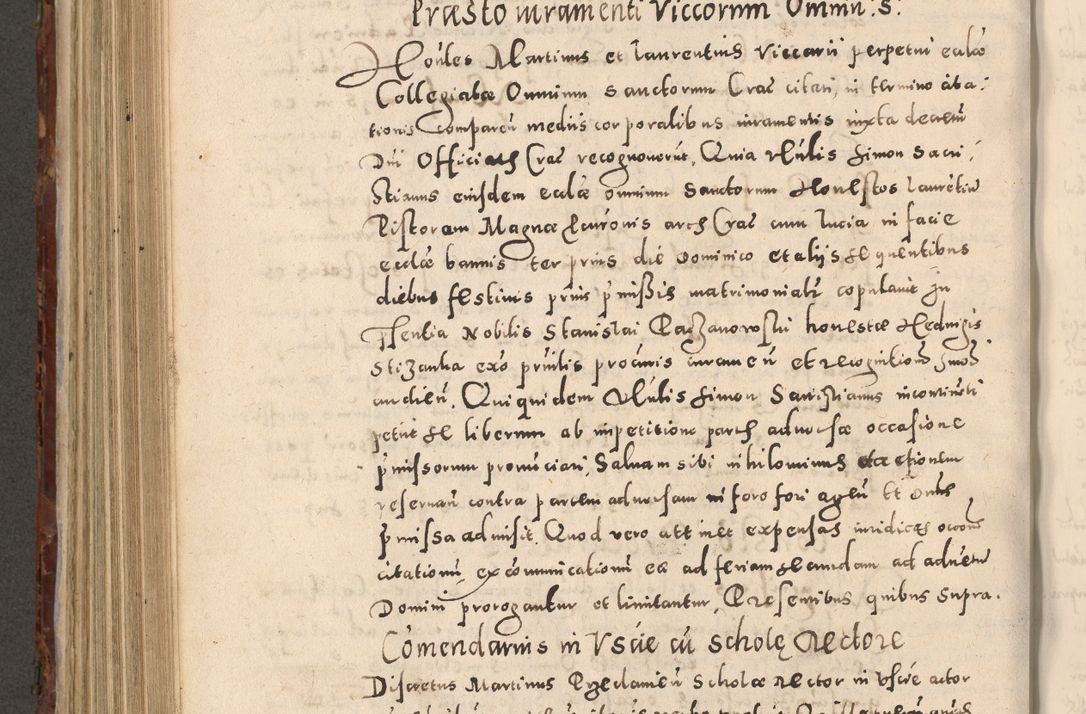 Præsto iuramenti Viccorum Omniu. S.
Honles Martinus et Laurentius Viccarii perpetui eccliæ
Collegiatæ Omnium Sanctorum Crac citati, in termino cita:
tionis comparen mediis corporalibus iuramentis iuxta decretu
Dni Officialis Crac recognoverut, Quia Nlis Simon Sacri:
stianus eiusdem ecclæ omnium Sanctorum Honestos Laurētiu
Pistorem Magnæ arch Crac cum Lucia in facie
ecclæ bannis ter prius die Dominico et aliis sequentibus
diebus festivis prius pmissis matrimonialr copulavit In
Psentia Nobilis Stanislai honestæ Hedwigis
exō prnlis procuris et recognitiones
audien. Qui quidem Nlis Simon Sacristianus incontinēti
petiit se liberum ab impetitione partis adversæ occasione
pmissorum pronuciari, Salvam sibi nihilominus
reservan contra partem adversam in foro fori agen Et Dnus
pmissa admisit. Quod vero attinet expensas iuridicas occone
citationu, excomunicationu eæ ad feriam secundam ad adventu
Domini prorogantur et limitantur, Præsentibus quibus supra.
Comendarius in Uscie cū scholę Rectore
Discretus Martinus Scholæ Rector in Uscie actor